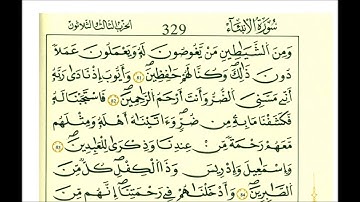 سُورَةُ الْأَنبِيَاءِ 329 الحزب الثالث والثلاثون
وَمِنَ الشَّيَاطِينِ مَن يَغُوصُونَ لَهُ وَيَعْمَلُونَ عَمَلًا
دُونَ ذَٰلِكَ وَكُنَّا لَهُمْ حَافِظِينَ ۞ وَأَيُّوبَ إِذْ نَادَىٰ رَبَّهُ
أَنِّي مَسَّنِيَ الضُّرُّ وَأَنتَ أَرْحَمُ الرَّاحِمِينَ ۞ فَاسْتَجَبْنَا لَهُ
فَكَشَفْنَا مَا بِهِ مِن ضُرٍّ وَءَاتَيْنَاهُ أَهْلَهُ وَمِثْلَهُم
مَعَهُمْ رَحْمَةً مِّنْ عِندِنَا وَذِكْرَىٰ لِلْعَابِدِينَ ۞
وَإِسْمَاعِيلَ وَإِدْرِيسَ وَذَا الْكِفْلِ كُلٌّ مِّنَ
الصَّابِرِينَ ۞ وَأَدْخَلْنَاهُمْ فِي رَحْمَتِنَا إِنَّهُم مِّنَ